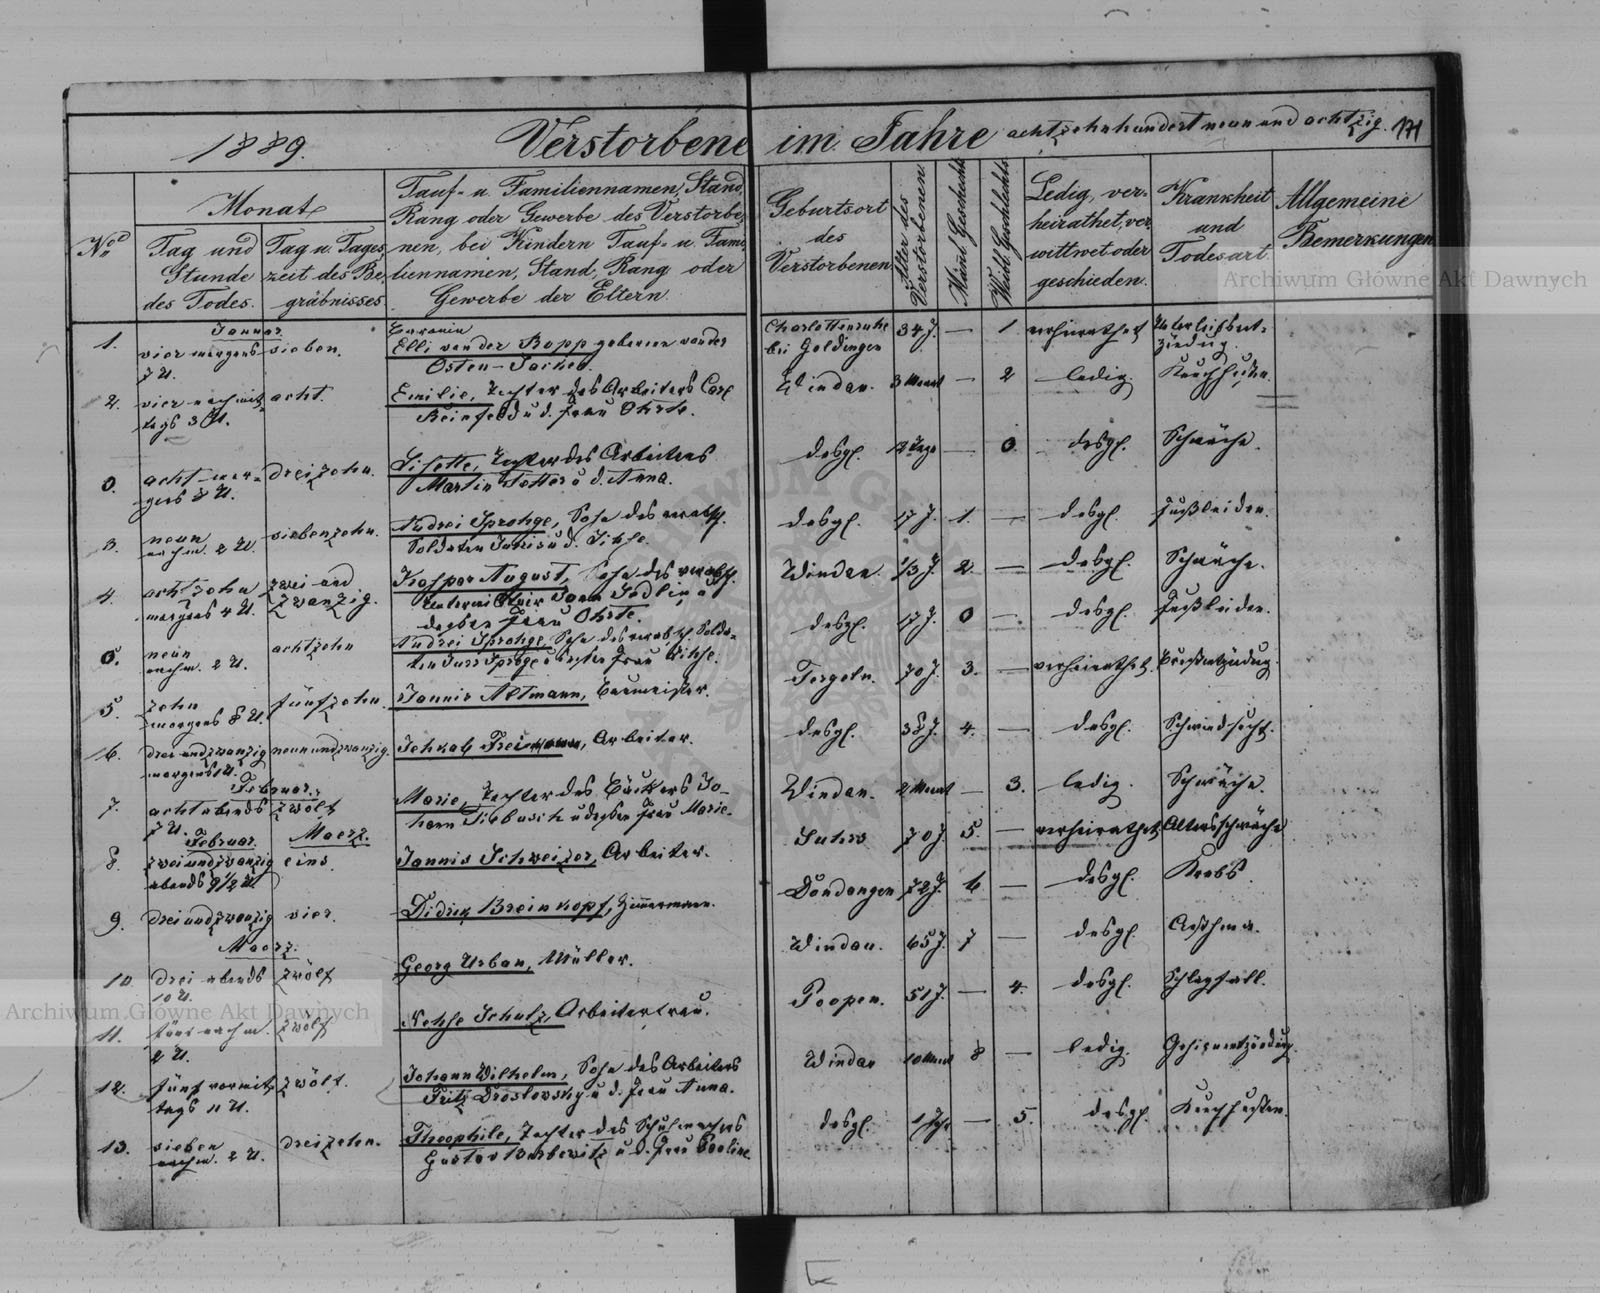 1889. Verstorbene im Jahre achtzehnhundert neun und achtzig. 171
No
Monat
Tag und Stunde des Todes.
Tag u. Tageszeit des Begräbnisses
Tauf- u Familiennamen, Stand,
Rang oder Gewerbe des Verstorbe-
nen, bei Kindern Tauf- u. Fami-
liennamen, Stand, Rang oder
Gewerbe der Eltern.
Geburtsort
des
Verstorbenen
Alter des Verstorbenen
Männl. Geschlechts
Weibl. Geschlechts
Ledig, ver-
heirathet, ver
wittwet oder
geschieden.
Krankheit
und
Todesart.
Allgemeine
Bemerkungen
Archiwum Główne Akt Dawnych
Januar
1. vier morgens 7 U. sieben.
Elli von der Ropp geborene von der
Osten-Sacken.
Charlottenruhe
bei Goldingen
34 J. — 1 verheirathet
2. vier nachmit-
tags 3 U. acht.
Emilie, Tochter des Arbeiters Carl
Reinfeld u d. Frau Ohrte.
Windau. 3 Monat — 2 ledig. Keuchhusten.
0. acht mor-
gens 8 U. dreizehn.
Lisette, Tochter des Arbeiters
Martin u. d. Anna.
desgl. — 0 desgl. Schwäche.
3. neun
nachm. 2 U. siebenzehn.
Andrei Sprohge, Sohn des verabsch.
Soldaten
desgl. 17 J. 1. — desgl. Fußleiden.
4. achtzehn
morgens 4 U. zwei und
zwanzig.
Kaspar August, Sohn des verabsch.
dessen Frau Ohrte.
Windau. 1/3 J. 2. — desgl. Schwäche.
0. neun
nachm. 2 U. achtzehn
Andrei Sprohge, Sohn des verabsch. Solda-
desgl. 17 J. 0 — desgl. Fußleiden.
5. zehn
morgens 8 U. fünfzehn.
Jannis Altmann,
Tergeln. 70 J. 3. — verheirathet.
16. drei und zwanzig
morgens U. neun und zwanzig.
Jehkab Freimann, Arbeiter.
desgl. 38 J. 4. — desgl. Schwindsucht.
Februar.
7. acht abends
7 U. zwölf
Marie, Tochter des Bäckers Jo-
hann u dessen Frau Marie.
Windau. 2 Monat — 3. ledig. Schwäche.
Februar. Maerz.
8. zwei und zwanzig
abends 9 1/2 U eins.
Jannis Schweizer, Arbeiter.
70 J. 5. — verheirathet Altersschwäche
9. drei und zwanzig vier.
Didrik Breinkopf, Zimmermann.
Dondangen 72 J. 6 — desgl. Krebs
Maerz.
10 drei abends
10 U. zwölf
Georg Urban, Müller.
Windau. 65 J. 7 — desgl. Asthma.
11. fünf nachm.
2 U. zwölf
Schulz, Arbeiterfrau.
Poopen. 51 J. — 4. desgl. Schlagfall.
12. fünf vormit-
tags 11 U. zwölf.
Johann Wilhelm, Sohn des Arbeiters
Fritz Droslowsky u d. Frau Anna.
Windau 10 Monat 8 — ledig. Gehirnentzündung.
13. sieben
nachm. 2 U. dreizehn.
Theophile, Tochter des Schuhmachers
Gustav u d. Frau Pauline
desgl. 1 Jahr — 5. desgl. Keuchhusten.
Archiwum Główne Akt Dawnych